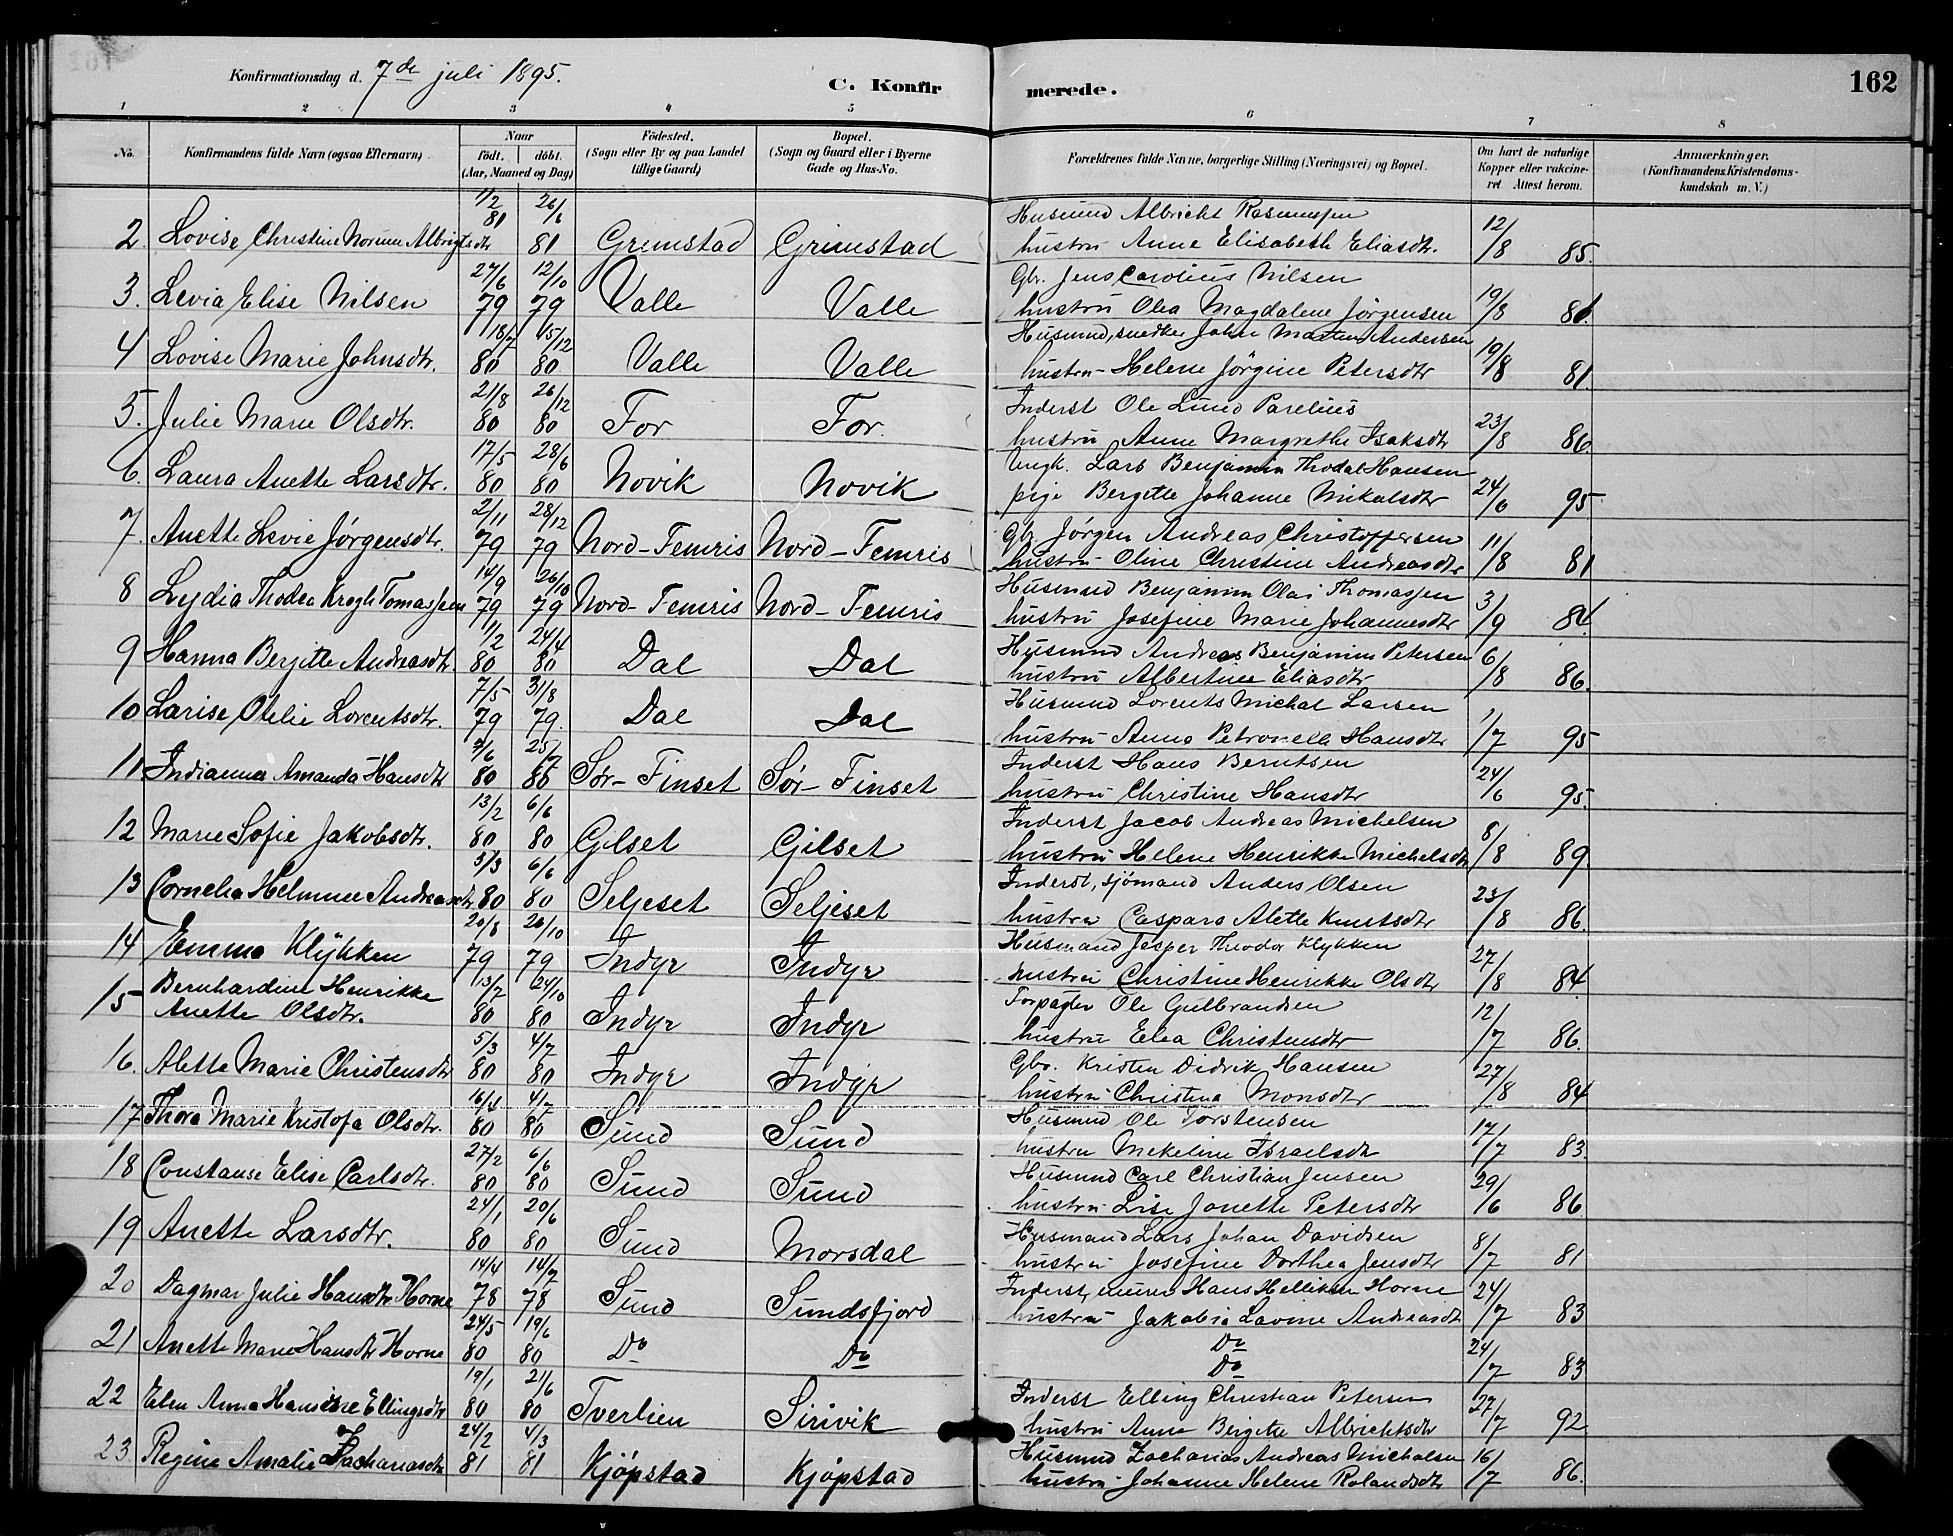 Konfirmationsdag d. 7de juli 1895. C. Konfirmerede. 162
1 2 3 4 5 6 7 8
No. Konfirmandens fulde Navn (ogsaa Efternavn). Naar født. døbt. (Aar, Maaned og Dag) Fødested. (Sogn eller By og paa Landet tillige Gaard) Bopæl. (Sogn og Gaard eller i Byerne Gade og Hus-No. Forældrenes fulde Navne, borgerlige Stilling (Næringsvei) og Bopæl. Om havt de naturlige Kopper eller vakcineret. Attest herom. Anmærkninger. (Konfirmandens Kristendomskundskab m. V.)
2. Lovise Christine Norum Albrigtsdtr 1/2 81 26/6 81 Grimstad Grimstad Husmand Albricht Rasmussen
hustru Anne Elisabeth Eliasdtr. 12/8 85.
3. Levia Elise Nilsen 27/6 79 12/10 79 Valle Valle Gbr. Jens Carolius Nilsen
hustru Olea Magdalene Jørgensen 19/8 81.
4 Lovise Marie Johnsdtr. 18/7 80 15/12 80 Valle Valle Husmand, snedker Johan Martin Andersen
hustru Helene Jörgine Petersdtr 19/8 81
5. Julie Marie Olsdtr. 21/8 80 26/12 80 For For. Inderst Ole Lund Parelius
hustru Anne Margrethe Isaksdtr 23/8 86
6. Laura Anette Larsdtr. 17/5 80 28/6 80 Novik Novik Ungk. Lars Benjamin Thodal Hansen
pige Bergitte Johanne Nikalsdtr 24/6 95
7. Anette Levie Jørgensdtr. 2/11 79 28/12 79 Nord-Femris Nord-Femris Gbr. Jørgen Andreas Christoffersen
hustru Oline Christine Andreasdtr 11/8 81
8 Lydia Thodea Krogh Tomassen 14/9 79 26/10 79 Nord-Femris Nord-Femris Husmand Benjamin Olai Thomassen
hustru Josefine Marie Johannesdtr 3/9 84.
9 Hanna Bergitte Andreasdtr. 1/2 80 24/4 80 Dal Dal Husmand Andreas Benjamin Petersen
hustru Albertine Eliasdtr 6/8 86.
10 Larise Otelie Lorentsdtr. 7/5 79 31/8 79. Dal Dal Husmand Lorents Michal Larsen
hustru Anna Petronelle Hansdtr 1/7 95
11 Indianna Amanda Hansdtr 7/6 80 25/7 80 Sør-Finset Sör-Finset Inderst Hans Berntsen
hustru Christine Hansdtr 24/6 95.
12 Marie Sofie Jakobsdtr. 13/2 80 6/6 80 Gilset Gilset Inderst Jacob Andreas Michelsen
hustru Helene Henrikke Michelsdtr 8/8 89
13 Cornelia Helmine Andreasdtr 5/3 80 6/6 80 Seljeset Seljeset Inderst, sjömand Anders Olsen
hustru Caspara Alette Knutsdtr 23/8 86.
14 Emma Klÿkken 20/8 79 26/10 79 Indyr Indyr Husmand Jesper Theodor Klykken
hustru Christine Henrikke Olsdtr 27/8 84.
15 Bernhardine Henrikke
Anette Olsdtr. 13/7 80 24/10 80 Indyr Indyr Forpagter Ole Gulbrandsen
hustru Elea Christensdtr 12/7 86.
16. Alette Marie Christensdtr 5/3 80 4/7 80 Indyr Indyr Gbr. Kristen Didrik Hansen
hustru Christina Monsdtr 27/8 84
17 Thora Marie Kristofa Olsdtr. 16/4 80 4/7 80 Sund Sund Husmand Ole Torstensen
hustru Mekeline Israelsdtr 17/7 83.
18 Constanse Elise Carlsdtr. 27/2 80 6/6 80 Sund Sund Husmand Carl Christian Jensen
hustru Lise Jonette Petersdtr 29/6 86
19 Anette Larsdtr. 24/1 80 20/6 80 Sund Morsdal Husmand Lars Johan Davidsen
hustru Josefine Dorthea Jensdtr 8/7 81
20 Dagmar Julie Hansdtr Horne 14/4 78 14/7 78 Sund Sundsfjord Inderst, murer Hans Horne
hustru Jakobia Lavine Andreasdtr 24/7 83
21 Anette Marie Hansdtr Horne 24/5 80 19/6 80 Do Do Do
Do 24/7 83
22 Elen Anna Hansine Ellingsdtr 19/1 80 21/6 80 Tverlien Sirivik Inderst Elling Christian Petersen
hustru Anne Birgitte Albrichtsdtr 27/7 92
23 Regine Amalie Zachariasdtr 24/2 81 4/3 81 Kjöpstad Kjöpstad Husmand Zacharias Andreas Michalsen
hustru Johanne Helene Rolandsdtr 16/7 86.